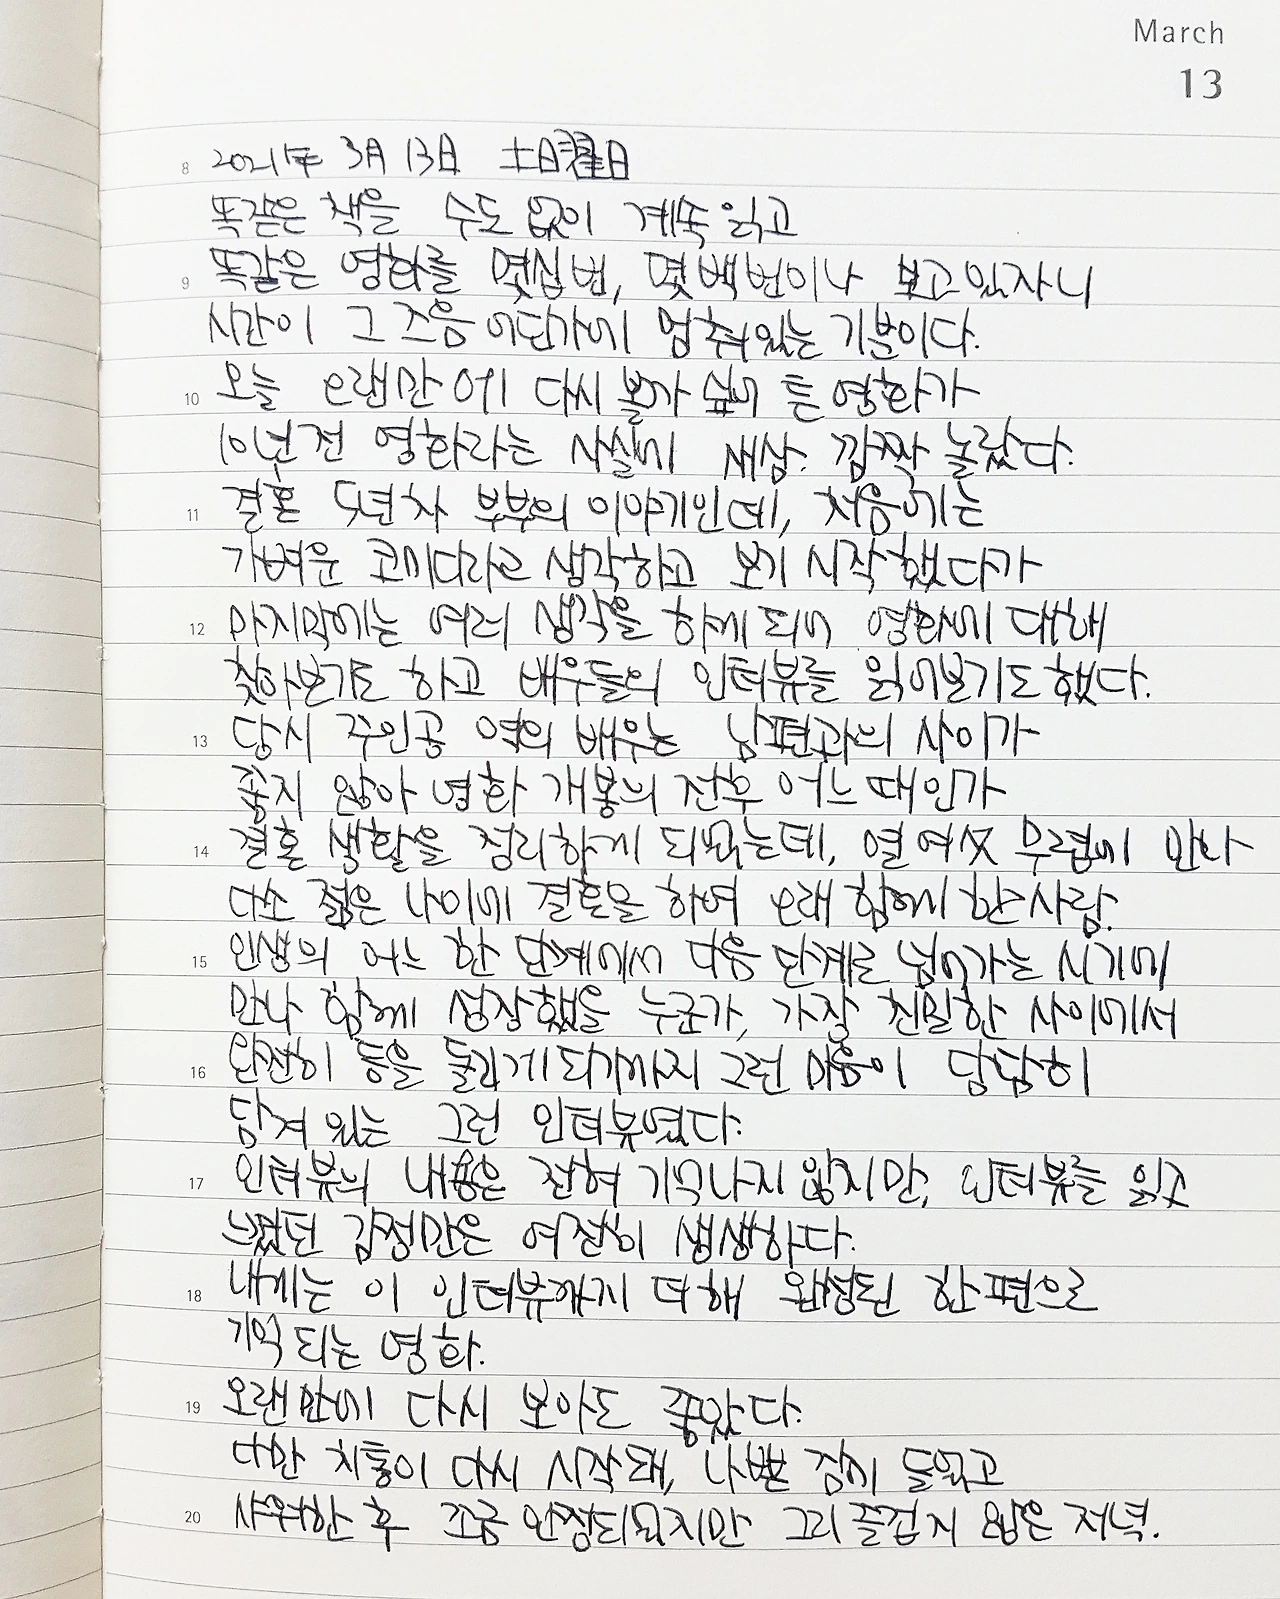 March
13
8 2021年 3月 13日 土曜日
똑같은 책을 수도 없이 계속 읽고
9 똑같은 영화를 몇십번, 몇백번이나 보고있자니
시간이 그 즈음 어딘가에 멈춰있는 기분이다.
10 오늘 오랜만에 다시 볼까 싶어 튼 영화가
10년전 영화라는 사실에 새삼 깜짝 놀랐다.
11 결혼 5년차 부부의 이야기인데, 처음에는
가벼운 코미디라고 생각하고 보기 시작했다가
12 마지막에는 여러 생각을 하게 되어 영화에 대해
찾아보기도 하고 배우들의 인터뷰를 읽어보기도 했다.
13 당시 주인공 역의 배우는 남편과의 사이가
좋지 않아 영화 개봉의 전후 어느 때인가
14 결혼 생활을 정리하게 되었는데, 열여섯 무렵에 만나
다소 젊은 나이에 결혼을 하여 오래 함께 한 사람.
15 인생의 어느 한 단계에서 다음 단계로 넘어가는 시기에
만나 함께 성장했을 누군가, 가장 친밀한 사이에서
16 완전히 등을 돌리게 되기까지 그런 마음이 담담히
담겨 있는 그런 인터뷰였다.
17 인터뷰의 내용은 전혀 기억나지 않지만, 인터뷰를 읽고
느꼈던 감정만은 여전히 생생하다.
18 내게는 이 인터뷰까지 더해 완성된 한 편으로
기억되는 영화.
19 오랜만에 다시 보아도 좋았다.
다만 치통이 다시 시작돼, 나쁜 잠에 들었고
20 샤워한 후 조금 안정되었지만 그리 즐겁지 않은 저녁.